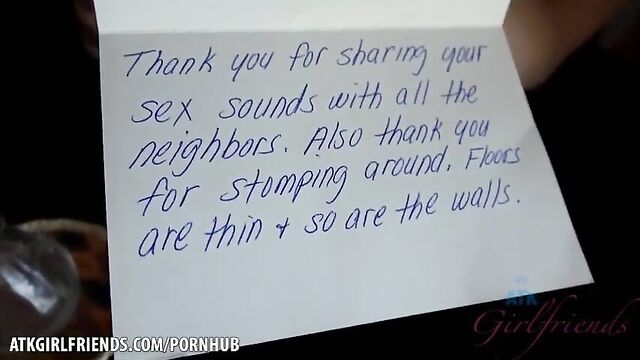 Thank you for sharing your
sex sounds with all the
neighbors. Also thank you
for stomping around. Floors
are thin + so are the walls.
ATK
Girlfriends
ATKGIRLFRIENDS.COM/PORNHUB